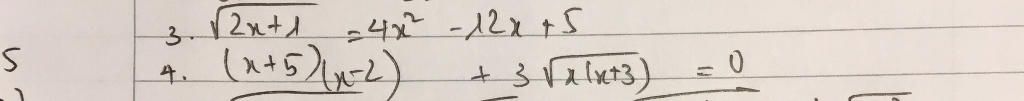 3. √(2x+1) = 4x² - 12x + 5
5
4. (x+5)(x-2) + 3√(x(x+3)) = 0